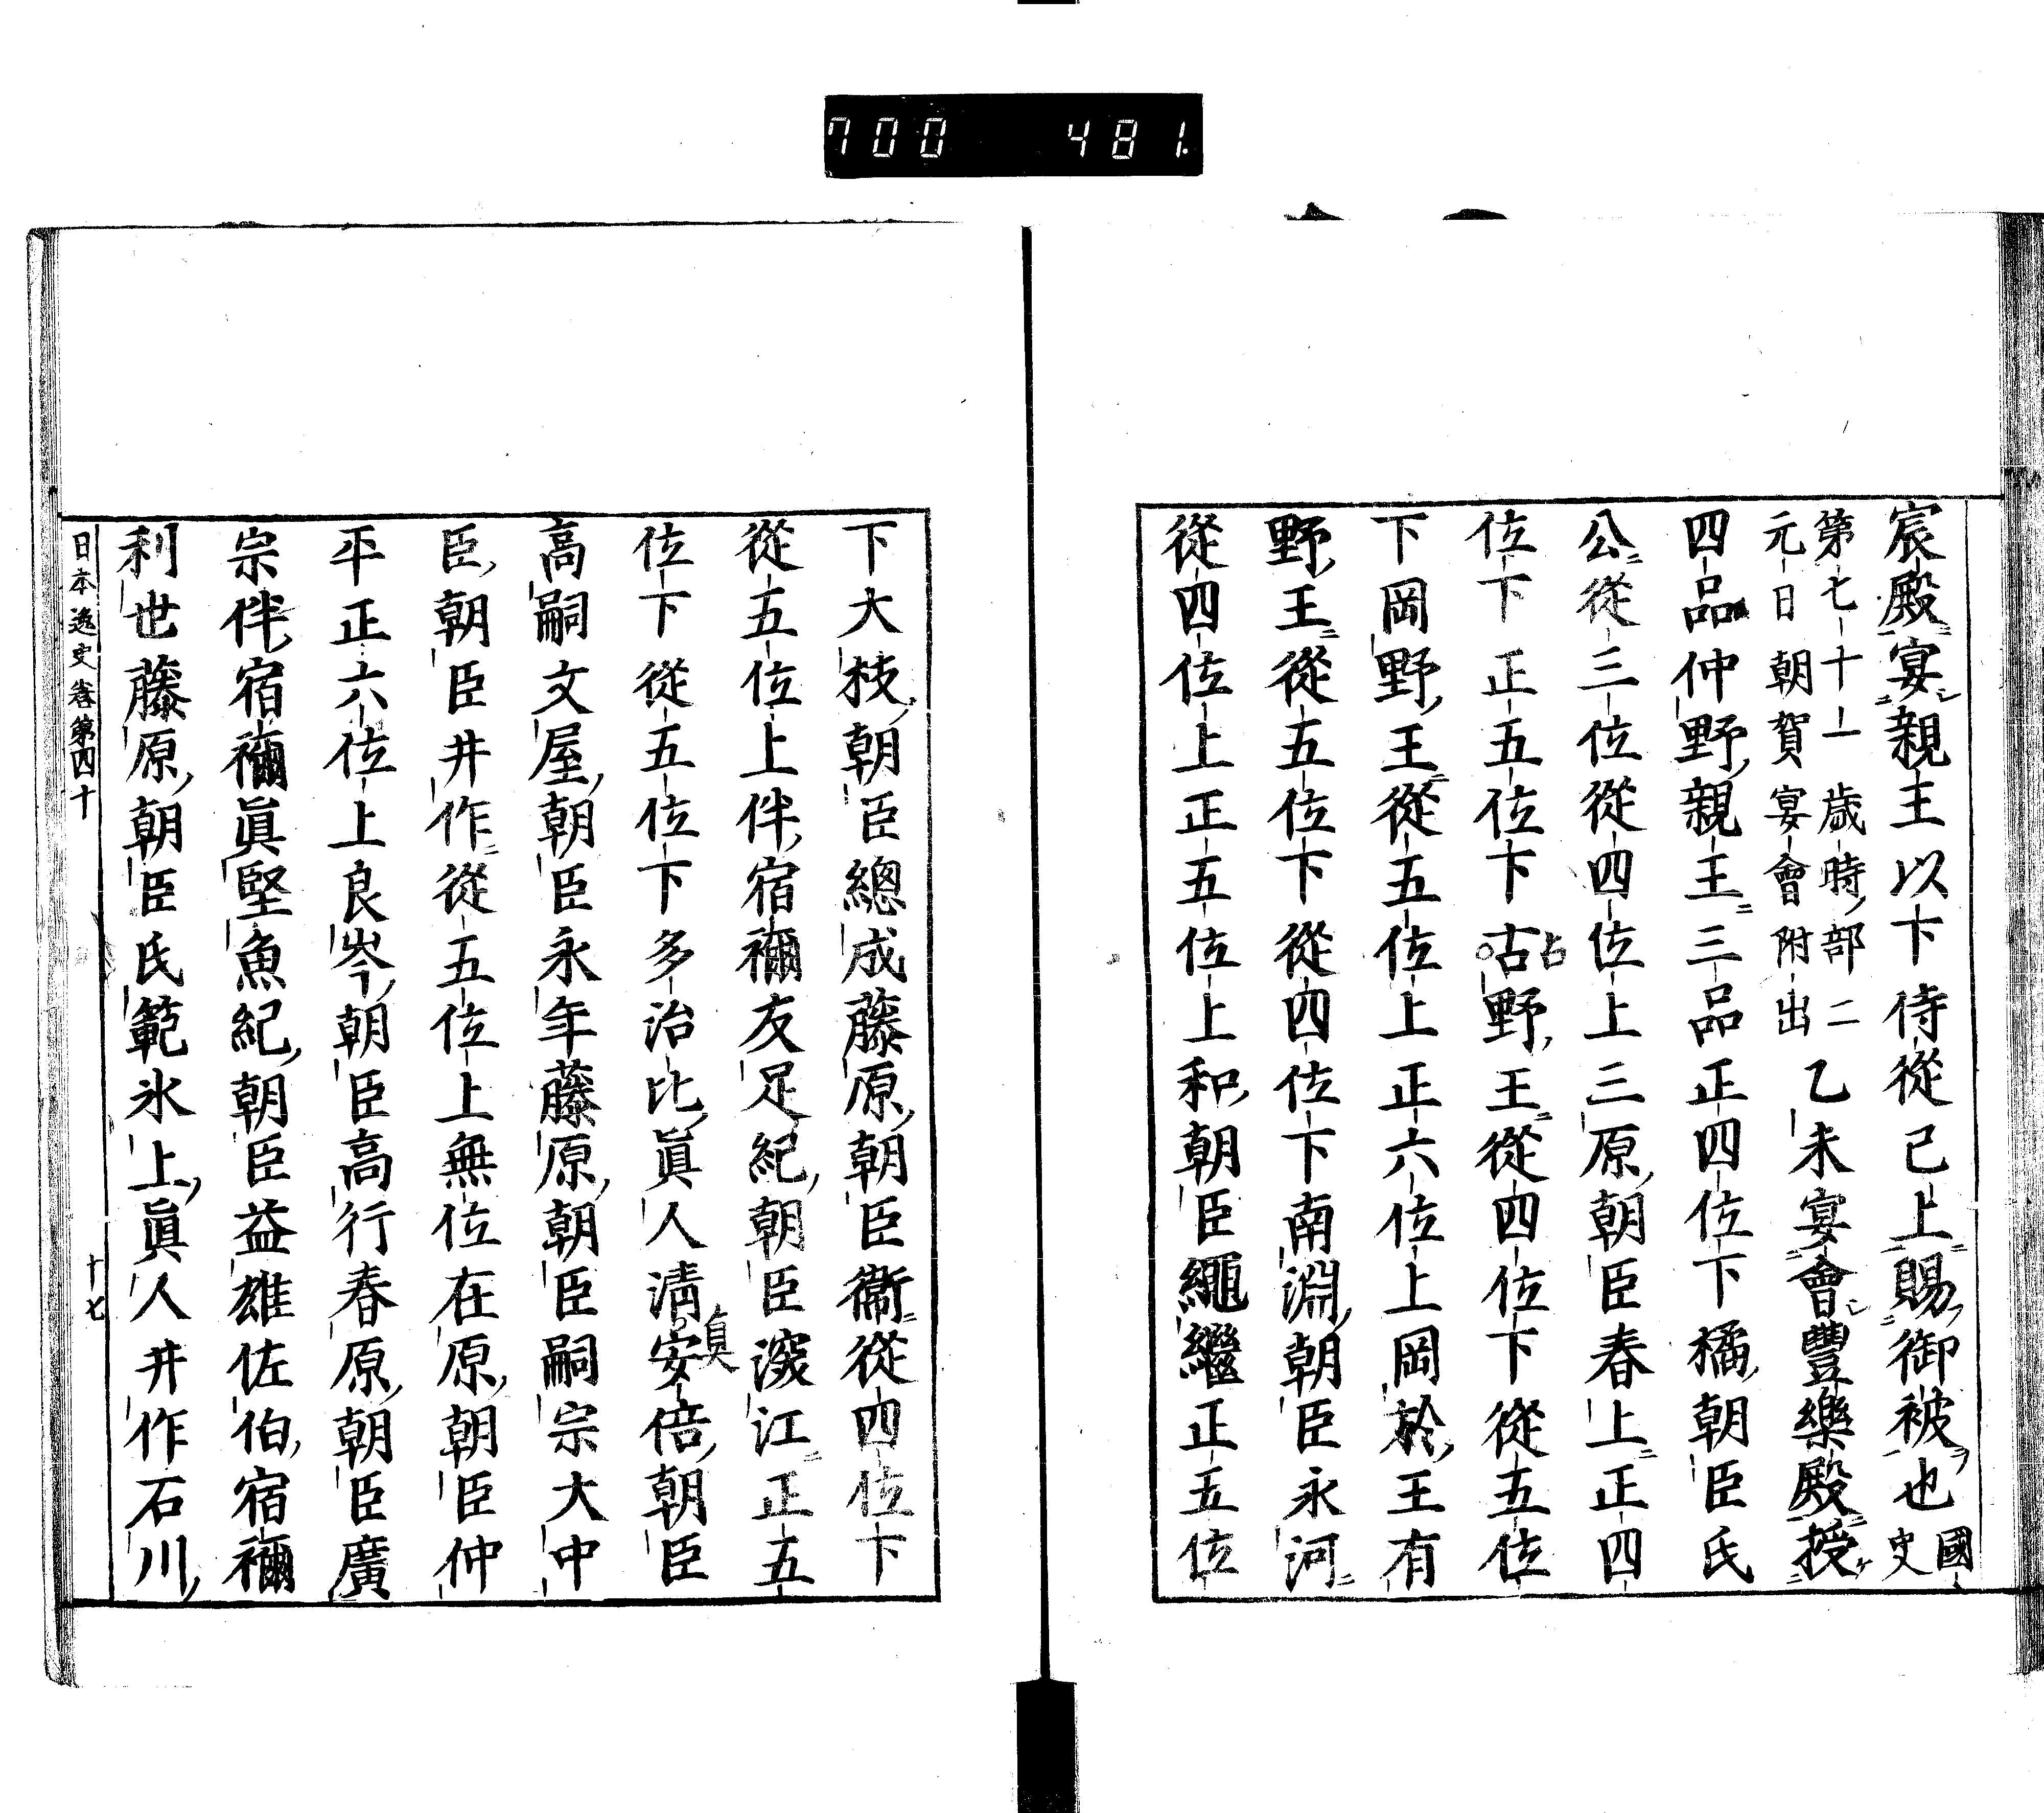 700 481
宸殿宴親王以下侍從已上賜御被也國史
第七十一歳時部二
元日朝賀宴會附出乙未宴會豐樂殿授
四品仲野親王三品正四位下橘朝臣氏
公從三位從四位上三原朝臣春上正四
位下正五位下古占野王從四位下從五位
下岡野王從五位上正六位上岡於王有
野王從五位下從四位下南淵朝臣永河
從四位上正五位上和朝臣繩繼正五位
下大枝朝臣總成藤原朝臣衞從四位下
從五位上伴宿禰友足紀朝臣深江正五
位下從五位下多治比眞人淸貞安倍朝臣
高嗣文屋朝臣永年藤原朝臣嗣宗大中
臣朝臣井作從五位上無位在原朝臣仲
平正六位上良岑朝臣高行春原朝臣廣
宗伴宿禰眞堅魚紀朝臣益雄佐伯宿禰
利世藤原朝臣氏範氷上眞人井作石川
日本逸史卷第四十 十七